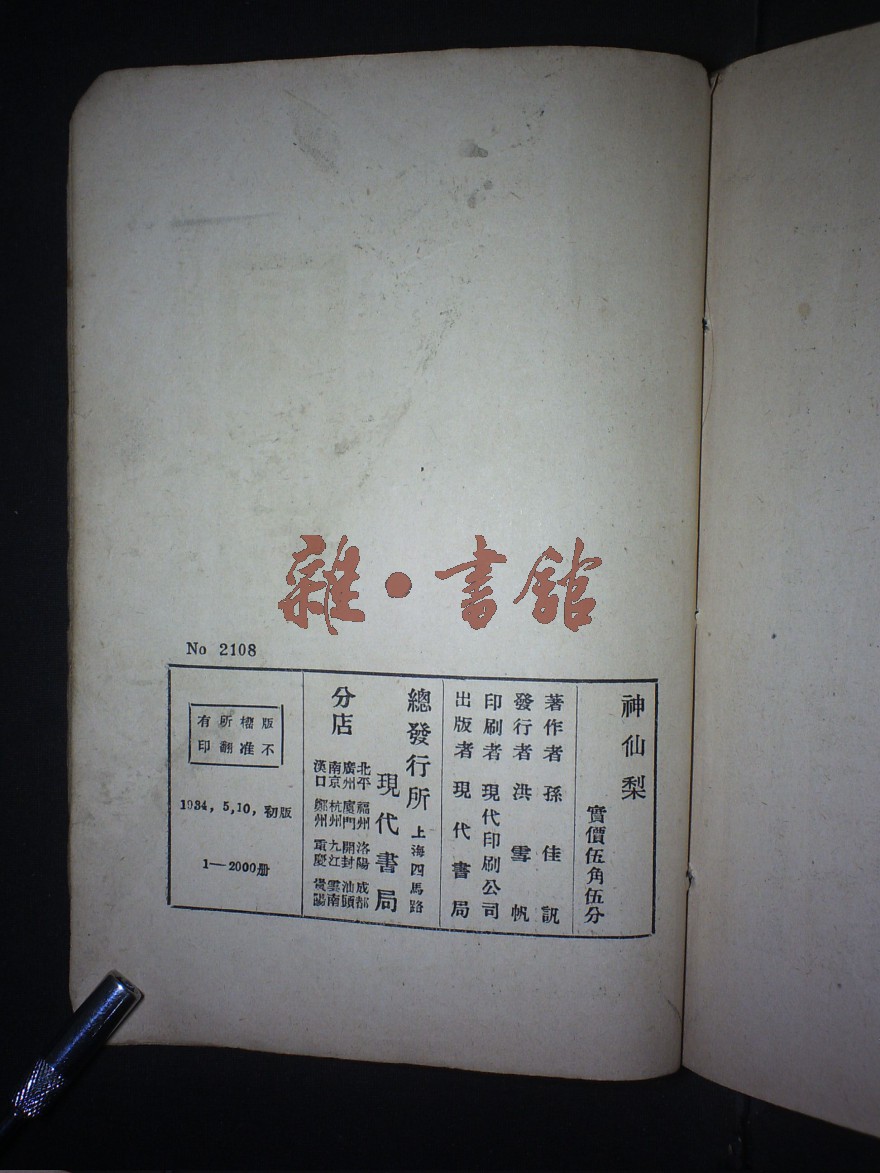 雜·書館
No 2108
神仙梨
實價伍角伍分
著作者 孫佳訊
發行者 洪雪帆
印刷者 現代印刷公司
出版者 現代書局
總發行所 上海四馬路
現代書局
分店
北平 福州 洛陽 成都
廣州 廈門 開封 汕頭
南京 杭州 九江 雲南
漢口 鄭州 重慶 貴陽
版權所有
不准翻印
1934, 5, 10, 初版
1—2000册